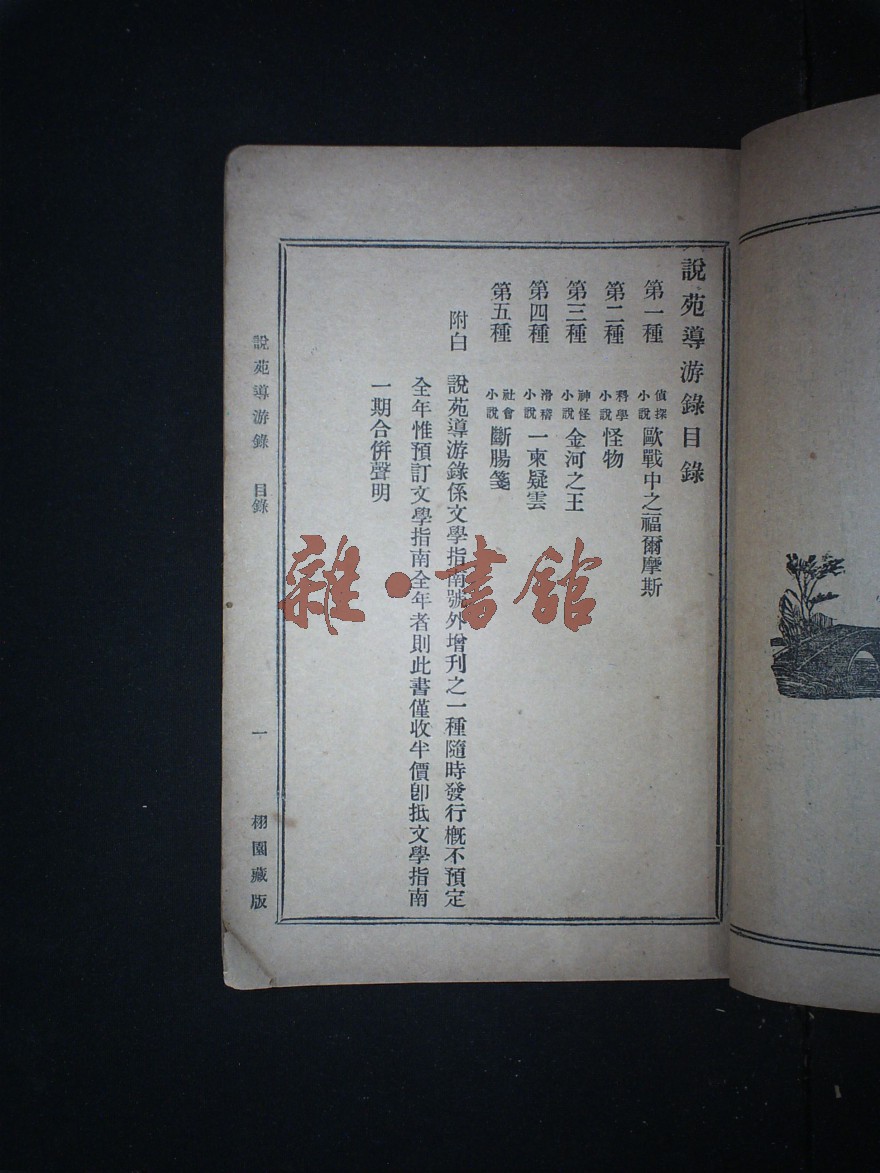 說苑導游錄目錄
第一種 偵探小說 歐戰中之福爾摩斯
第二種 科學小說 怪物
第三種 神怪小說 金河之王
第四種 滑稽小說 一束疑雲
第五種 社會小說 斷腸箋
附白 說苑導游錄係文學指南號外增刊之一種隨時發行概不預定
全年惟預訂文學指南全年者則此書僅收半價卽抵文學指南
一期合併聲明
說苑導游錄 目錄 一 栩園藏版
雜·書館